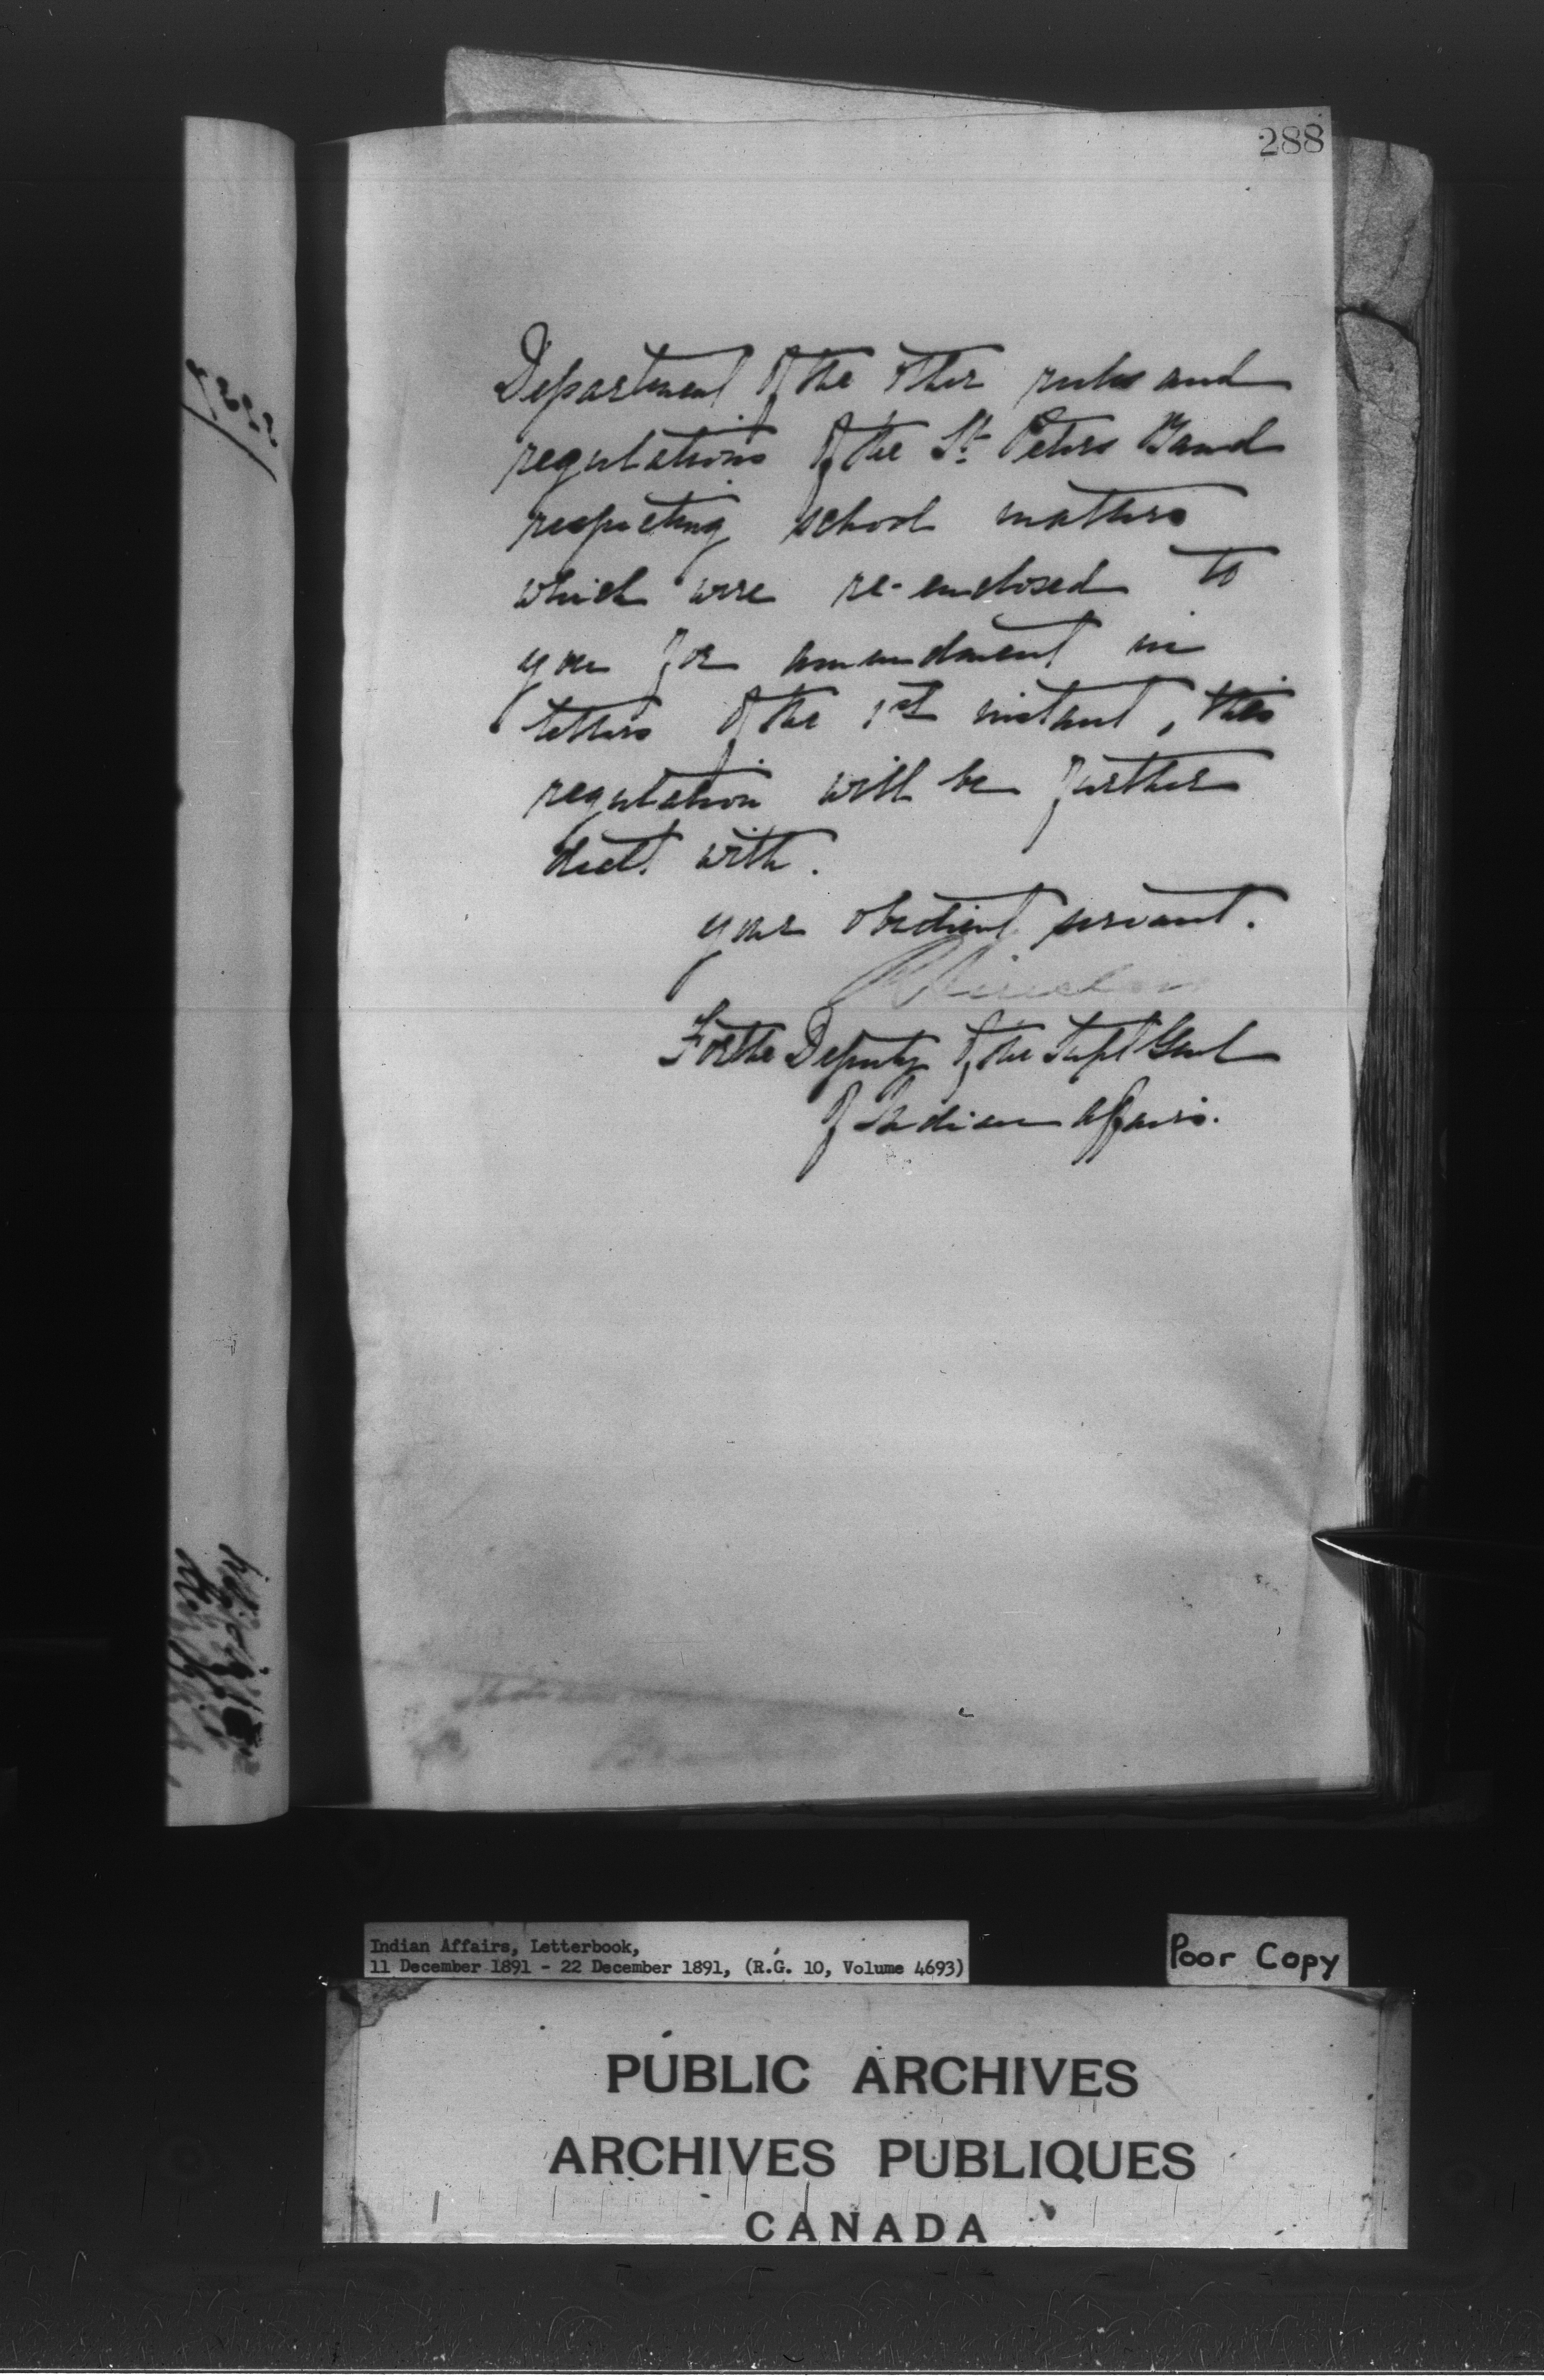 288
Department of the other rules and
regulations of the St. Peters Band
respecting school matters
which were re-enclosed to
you for amendment in
letters of the 1st instant, this
regulation will be further
dealt with.
your obedient servant.
For the Deputy of the Supt Genl
of Indian Affairs.
Indian Affairs, Letterbook,
11 December 1891 - 22 December 1891, (R.G. 10, Volume 4693)
Poor Copy
PUBLIC ARCHIVES
ARCHIVES PUBLIQUES
CANADA